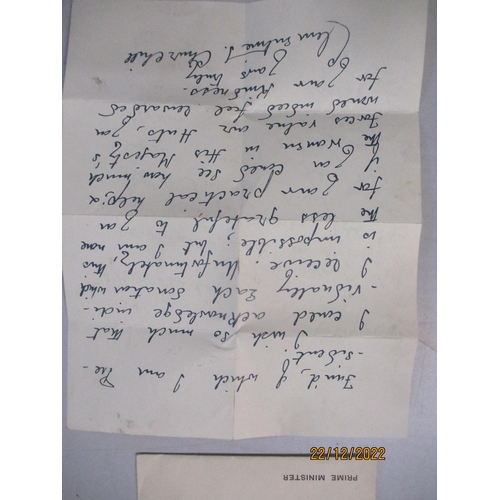 PRIME MINISTER
22/12/2022
Fund, of which I am Pre-
-sident,
I wish so much that
I could acknowledge indi-
-vidually each donation which
I receive. Unfortunately, this
is impossible; but I am none
the less grateful to you
for your practical help; &
if you could see how much
the Women in His Majesty's
Forces value our Huts, you
would indeed feel rewarded
for your kindness.
Yours truly
Clementine S. Churchill